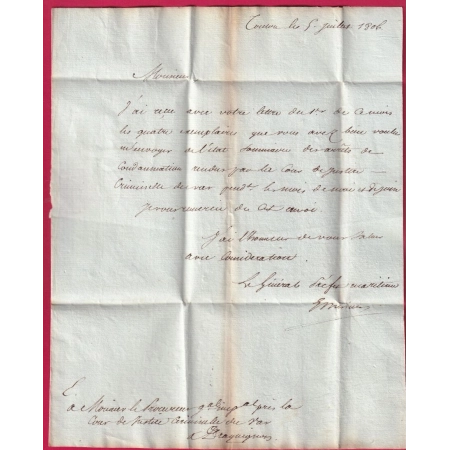 Toulon le 5 juillet 1806
Monsieur
J'ai reçu avec votre lettre du 1er de ce mois
les quatre exemplaires que vous avez bien voulu
m'envoyer de l'état Sommaire des arrêts de
Condamnation rendus par la Cour de justice
Criminelle du var pendt. les mois de mai et de juin
je vous remercie de cet envoi
J'ai l'honneur de vous saluer
avec Considération.
Le Général Préfet maritime
A Monsieur le Procureur gal. impal. près la
Cour de Justice Criminelle du Var
à Draguignan